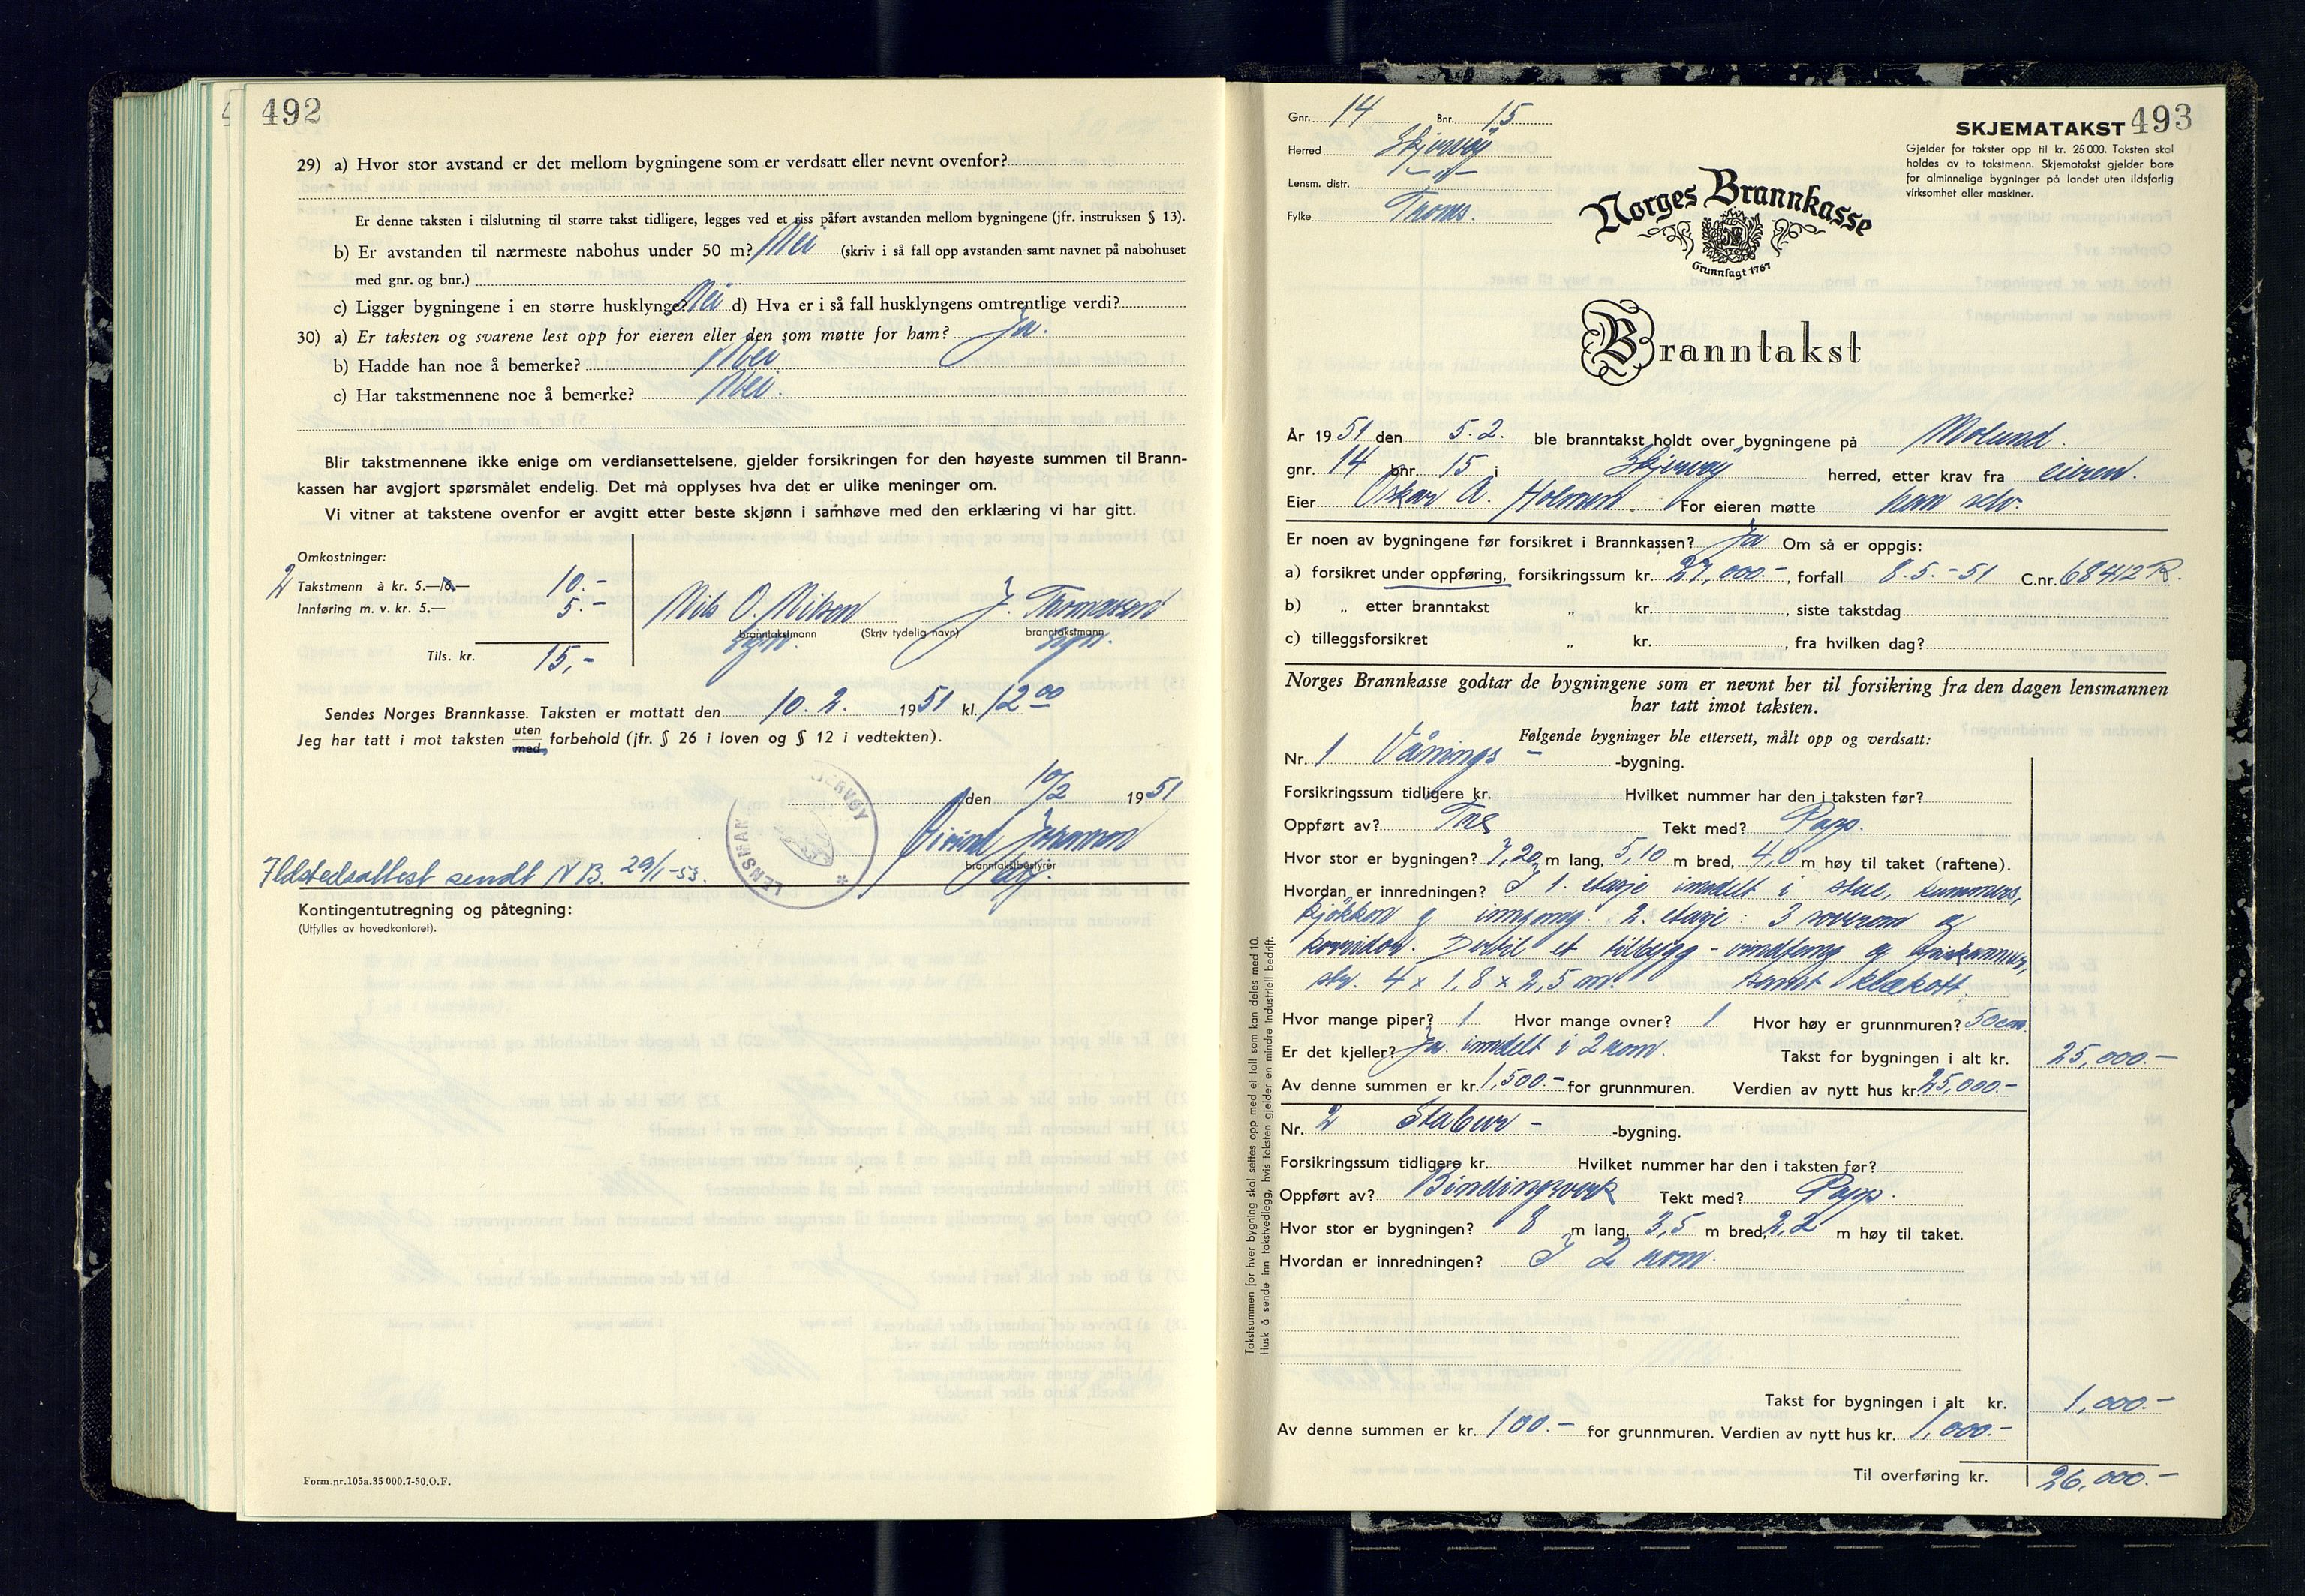 492
29) a) Hvor stor avstand er det mellom bygningene som er verdsatt eller nevnt ovenfor?
Er denne taksten i tilslutning til større takst tidligere, legges ved et riss påført avstanden mellom bygningene (jfr. instruksen § 13).
b) Er avstanden til nærmeste nabohus under 50 m? Nei (skriv i så fall opp avstanden samt navnet på nabohuset
med gnr. og bnr.)
c) Ligger bygningene i en større husklynge? Nei d) Hva er i så fall husklyngens omtrentlige verdi?
30) a) Er taksten og svarene lest opp for eieren eller den som møtte for ham? Ja.
b) Hadde han noe å bemerke? Nei
c) Har takstmennene noe å bemerke? Nei.
Blir takstmennene ikke enige om verdiansettelsene, gjelder forsikringen for den høyeste summen til Brann-
kassen har avgjort spørsmålet endelig. Det må opplyses hva det er ulike meninger om.
Vi vitner at takstene ovenfor er avgitt etter beste skjønn i samhøve med den erklæring vi har gitt.
Omkostninger:
2 Takstmenn à kr. 5.—/6.— 10.-
Innføring m. v. kr. 5.— 5.-
Tils. kr. 15,-
Nils O. Nilsen J. Thomassen
branntakstmann (Skriv tydelig navn) branntakstmann
sign. sign.
Sendes Norges Brannkasse. Taksten er mottatt den 10. 2. 1951 kl. 12 00
Jeg har tatt i mot taksten uten med forbehold (jfr. § 26 i loven og § 12 i vedtekten).
den 10/2 1951
LENSMAN ERVØY
Johansen
branntakstbestyrer
Ildstedsattest sendt N.B. 29/1-53.
Kontingentutregning og påtegning:
(Utfylles av hovedkontoret).
Form.nr.105a.35 000.7-50.O.F.
493
Gnr. 14 Bnr. 15
Herred Skjervøy
Lensm. distr. -"-
Fylke Troms.
SKJEMATAKST
Gjelder for takster opp til kr. 25 000. Taksten skal
holdes av to takstmenn. Skjematakst gjelder bare
for alminnelige bygninger på landet uten ildsfarlig
virksomhet eller maskiner.
Norges Brannkasse
Grunnlagt 1767
Branntakst
År 1951 den 5. 2. ble branntakst holdt over bygningene på Molund.
gnr. 14 bnr. 15 i Skjervøy herred, etter krav fra eieren.
Eier Oskar A. Holmen. For eieren møtte han selv.
Er noen av bygningene før forsikret i Brannkassen? Ja Om så er oppgis:
a) forsikret under oppføring, forsikringssum kr. 27,000.-, forfall 8. 5. - 51 C.nr. 68412 R.
b) „ etter branntakst „ kr. , siste takstdag
c) tilleggsforsikret „ kr. , fra hvilken dag?
Norges Brannkasse godtar de bygningene som er nevnt her til forsikring fra den dagen lensmannen
har tatt imot taksten.
Følgende bygninger ble ettersett, målt opp og verdsatt:
Nr. 1 Vånings - -bygning.
Forsikringssum tidligere kr. Hvilket nummer har den i taksten før?
Oppført av? Tre Tekt med? Papp.
Hvor stor er bygningen? 7,20 m lang, 5,10 m bred, 4,0 m høy til taket (raftene).
Hvordan er innredningen? I 1. etasje inndelt i stue, kammers,
kjøkken og inngang. 2. etasje: 3 soverom og
korridor. Dertil et tilbygg - vindfang og spiskammer,
str. 4 x 1,8 x 2,5 m. samt kløkott.
Hvor mange piper? 1 Hvor mange ovner? 1 Hvor høy er grunnmuren? 50 cm.
Er det kjeller? Ja. inndelt i 2 rom. Takst for bygningen i alt kr. 25,000.-
Av denne summen er kr. 1,500.- for grunnmuren. Verdien av nytt hus kr. 25,000.-
Nr. 2 Stabur - -bygning.
Forsikringssum tidligere kr. Hvilket nummer har den i taksten før?
Oppført av? Bindingsverk Tekt med? Papp.
Hvor stor er bygningen? 8 m lang, 3,5 m bred, 2,2 m høy til taket.
Hvordan er innredningen? I 2 rom.
Takst for bygningen i alt kr. 1,000.-
Av denne summen er kr. 100.- for grunnmuren. Verdien av nytt hus kr. 1,000.-
Til overføring kr. 26,000.-
Takstsummen for hver bygning skal settes opp med et tall som kan deles med 10.
Husk å sende inn takstvedlegg, hvis taksten gjelder en mindre industriell bedrift.